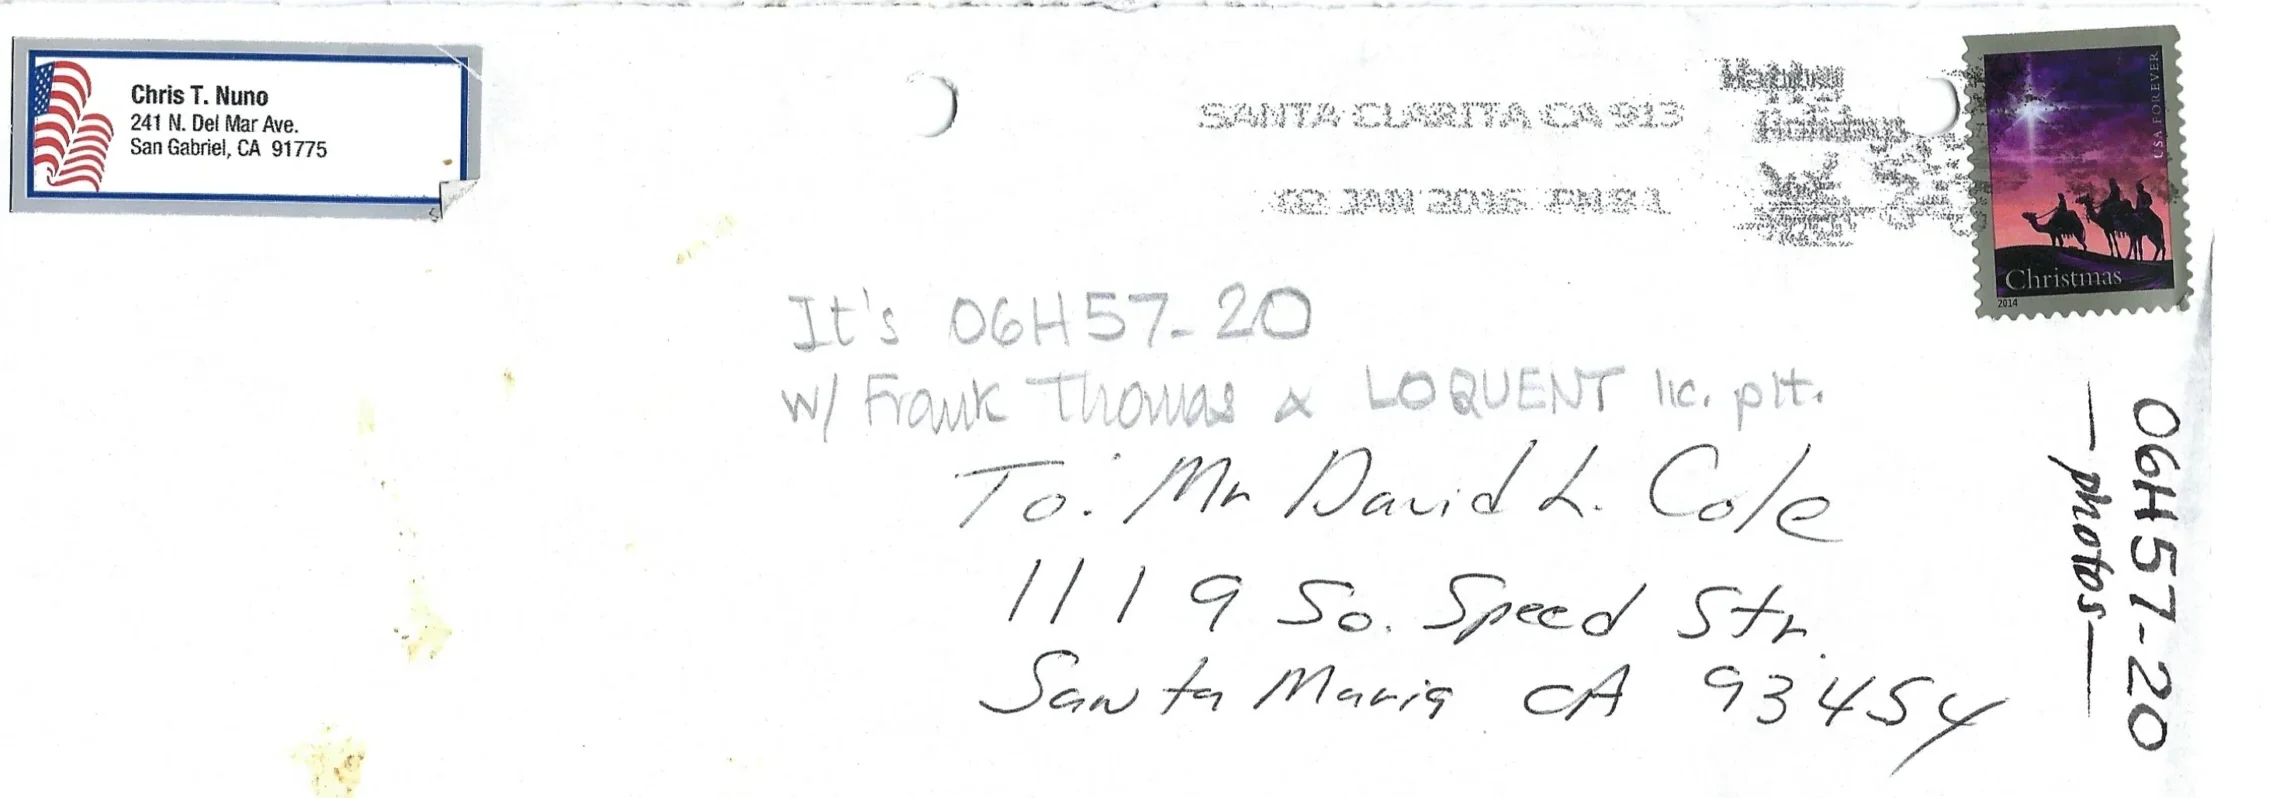 Chris T. Nuno
241 N. Del Mar Ave.
San Gabriel, CA 91775
SANTA CLARITA CA 913
02 JAN 2016 PM 2 L
Holidays
USA FOREVER
Christmas
2014
It's 06H57-20
w/ Frank Thomas & LOQUENT lic. plt.
To: Mr David L. Cole
1119 So. Speed Str.
Santa Maria CA 93454
06H57-20
— photos —